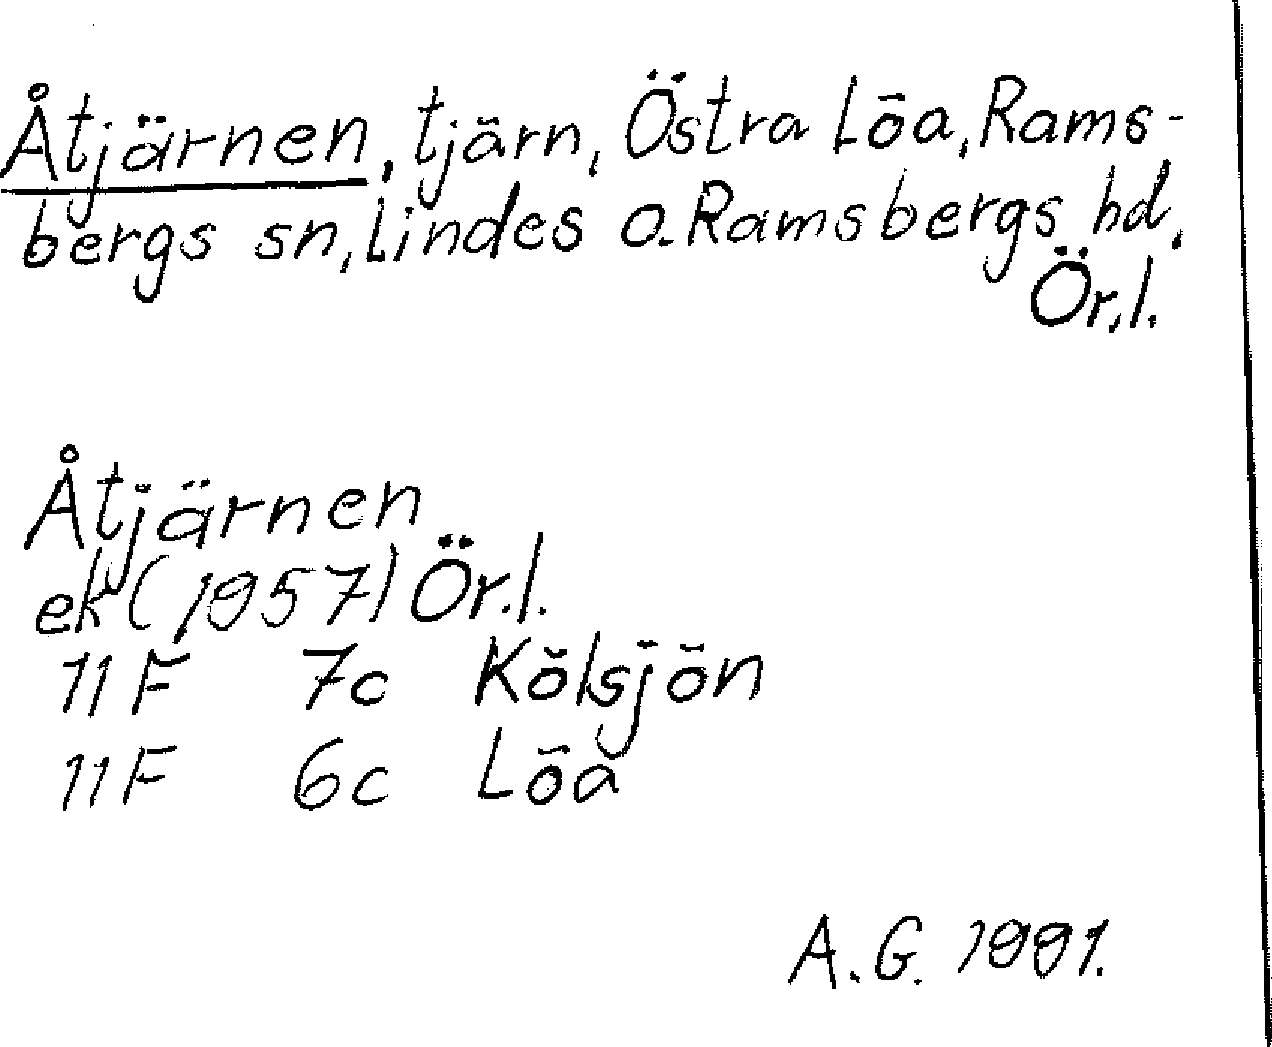 Åtjärnen, tjärn, Östra Löa, Rams-
bergs sn, Lindes o. Ramsbergs hd,
Ör.l.
Åtjärnen
ek (1957) Ör.l.
11F 7c Kölsjön
11F 6c Löa
A.G. 1991.